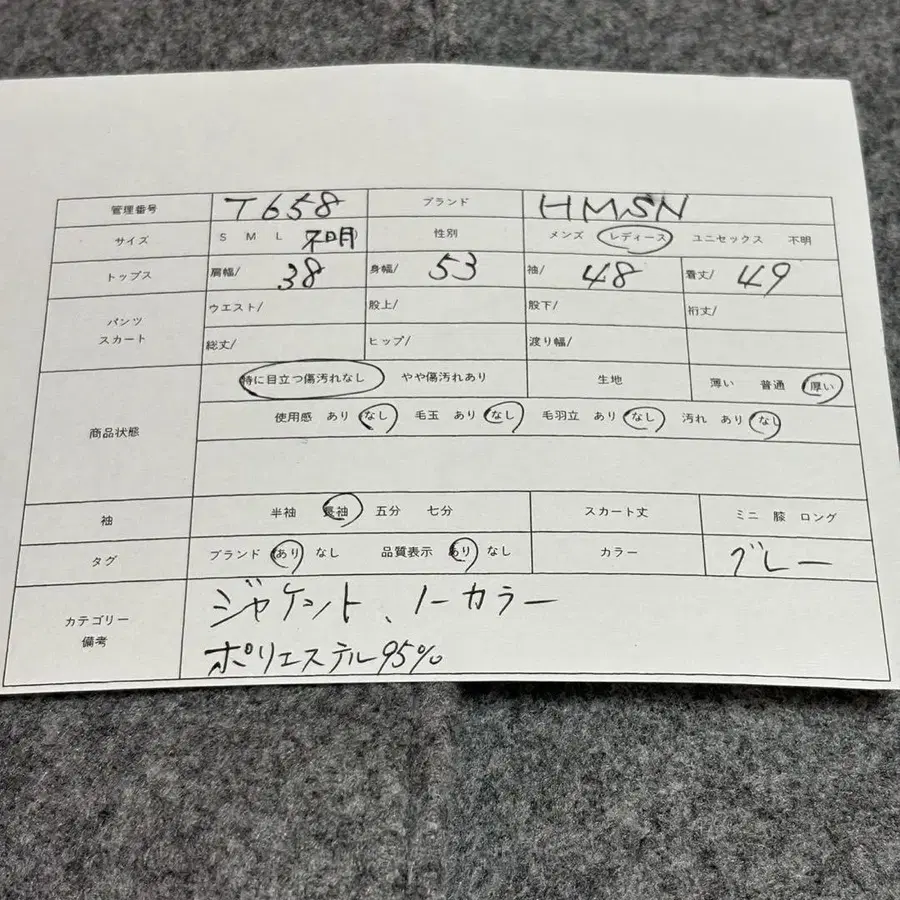 管理番号 T658 ブランド HMSN
サイズ S M L 不明 性別 メンズ レディース ユニセックス 不明
トップス 肩幅/ 38 身幅/ 53 袖/ 48 着丈/ 49
パンツ スカート ウエスト/ 股上/ 股下/ 裄丈/
総丈/ ヒップ/ 渡り幅/
商品状態 特に目立つ傷汚れなし やや傷汚れあり 生地 薄い 普通 厚い
使用感 あり なし 毛玉 あり なし 毛羽立 あり なし 汚れ あり なし
袖 半袖 長袖 五分 七分 スカート丈 ミニ 膝 ロング
タグ ブランド あり なし 品質表示 あり なし カラー グレー
カテゴリー 備考 ジャケット、ノーカラー
ポリエステル95%